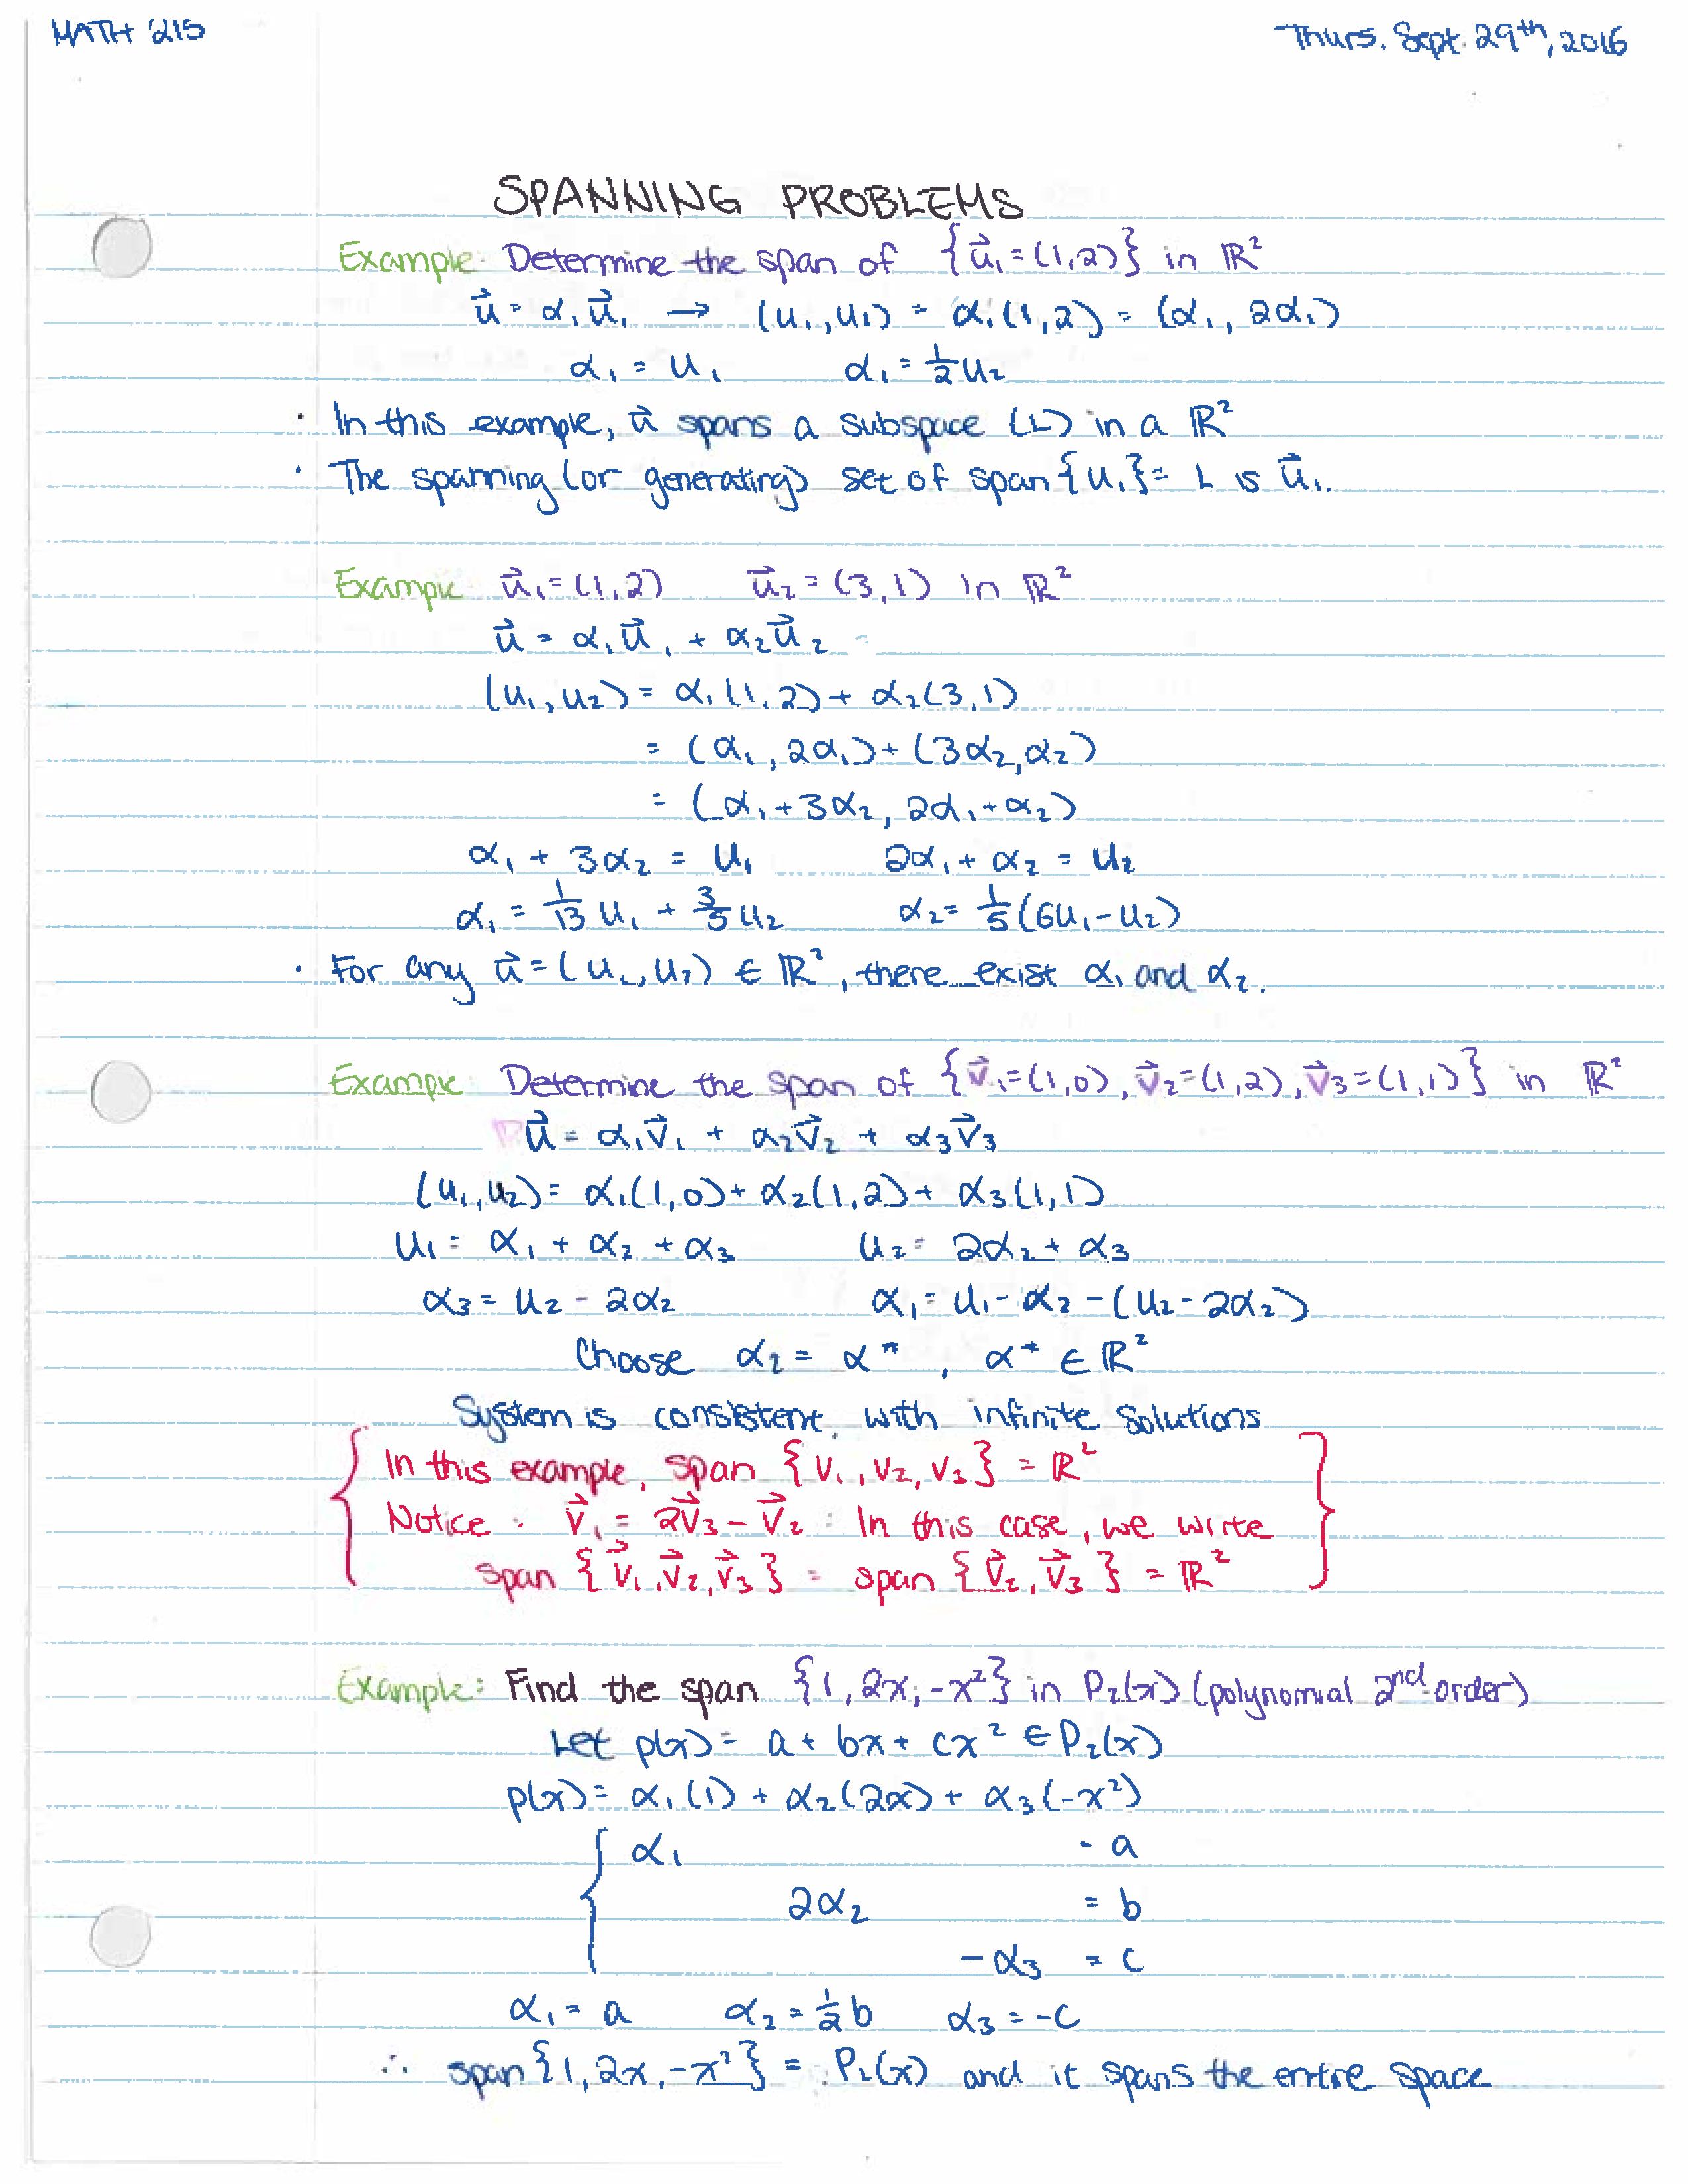 MATH 215
Thurs. Sept. 29th, 2016
SPANNING PROBLEMS
Example: Determine the span of {u⃗₁ = (1,2)} in ℝ²
u⃗ = α₁u⃗₁ → (u₁, u₂) = α₁(1,2) = (α₁, 2α₁)
α₁ = u₁ α₁ = ½u₂
· In this example, u⃗ spans a subspace (L) in a ℝ²
· The spanning (or generating) set of span {u₁} = L is u⃗₁.
Example u⃗₁ = (1,2) u⃗₂ = (3,1) in ℝ²
u⃗ = α₁u⃗₁ + α₂u⃗₂ =
(u₁, u₂) = α₁(1,2) + α₂(3,1)
= (α₁, 2α₁) + (3α₂, α₂)
= (α₁ + 3α₂, 2α₁ + α₂)
α₁ + 3α₂ = u₁ 2α₁ + α₂ = u₂
α₁ = 1/13 u₁ + 3/5 u₂ α₂ = 1/5 (6u₁ - u₂)
· For any u⃗ = (u₁, u₂) ∈ ℝ², there exist α₁ and α₂.
Example Determine the span of {v⃗₁ = (1,0), v⃗₂ = (1,2), v⃗₃ = (1,1)} in ℝ²
u⃗ = α₁v⃗₁ + α₂v⃗₂ + α₃v⃗₃
(u₁, u₂) = α₁(1,0) + α₂(1,2) + α₃(1,1)
u₁ = α₁ + α₂ + α₃ u₂ = 2α₂ + α₃
α₃ = u₂ - 2α₂ α₁ = u₁ - α₂ - (u₂ - 2α₂)
Choose α₂ = α*, α* ∈ ℝ²
System is consistent, with infinite solutions
In this example, span {v₁, v₂, v₃} = ℝ²
Notice: v⃗₁ = 2v⃗₃ - v⃗₂ : In this case, we write
span {v⃗₁, v⃗₂, v⃗₃} = span {v⃗₂, v⃗₃} = ℝ²
Example: Find the span {1, 2x, -x²} in P₂(x) (polynomial 2nd order)
Let p(x) = a + bx + cx² ∈ P₂(x)
p(x) = α₁(1) + α₂(2x) + α₃(-x²)
α₁ = a
2α₂ = b
-α₃ = c
α₁ = a α₂ = ½b α₃ = -c
∴ span {1, 2x, -x²} = P₂(x) and it spans the entire space